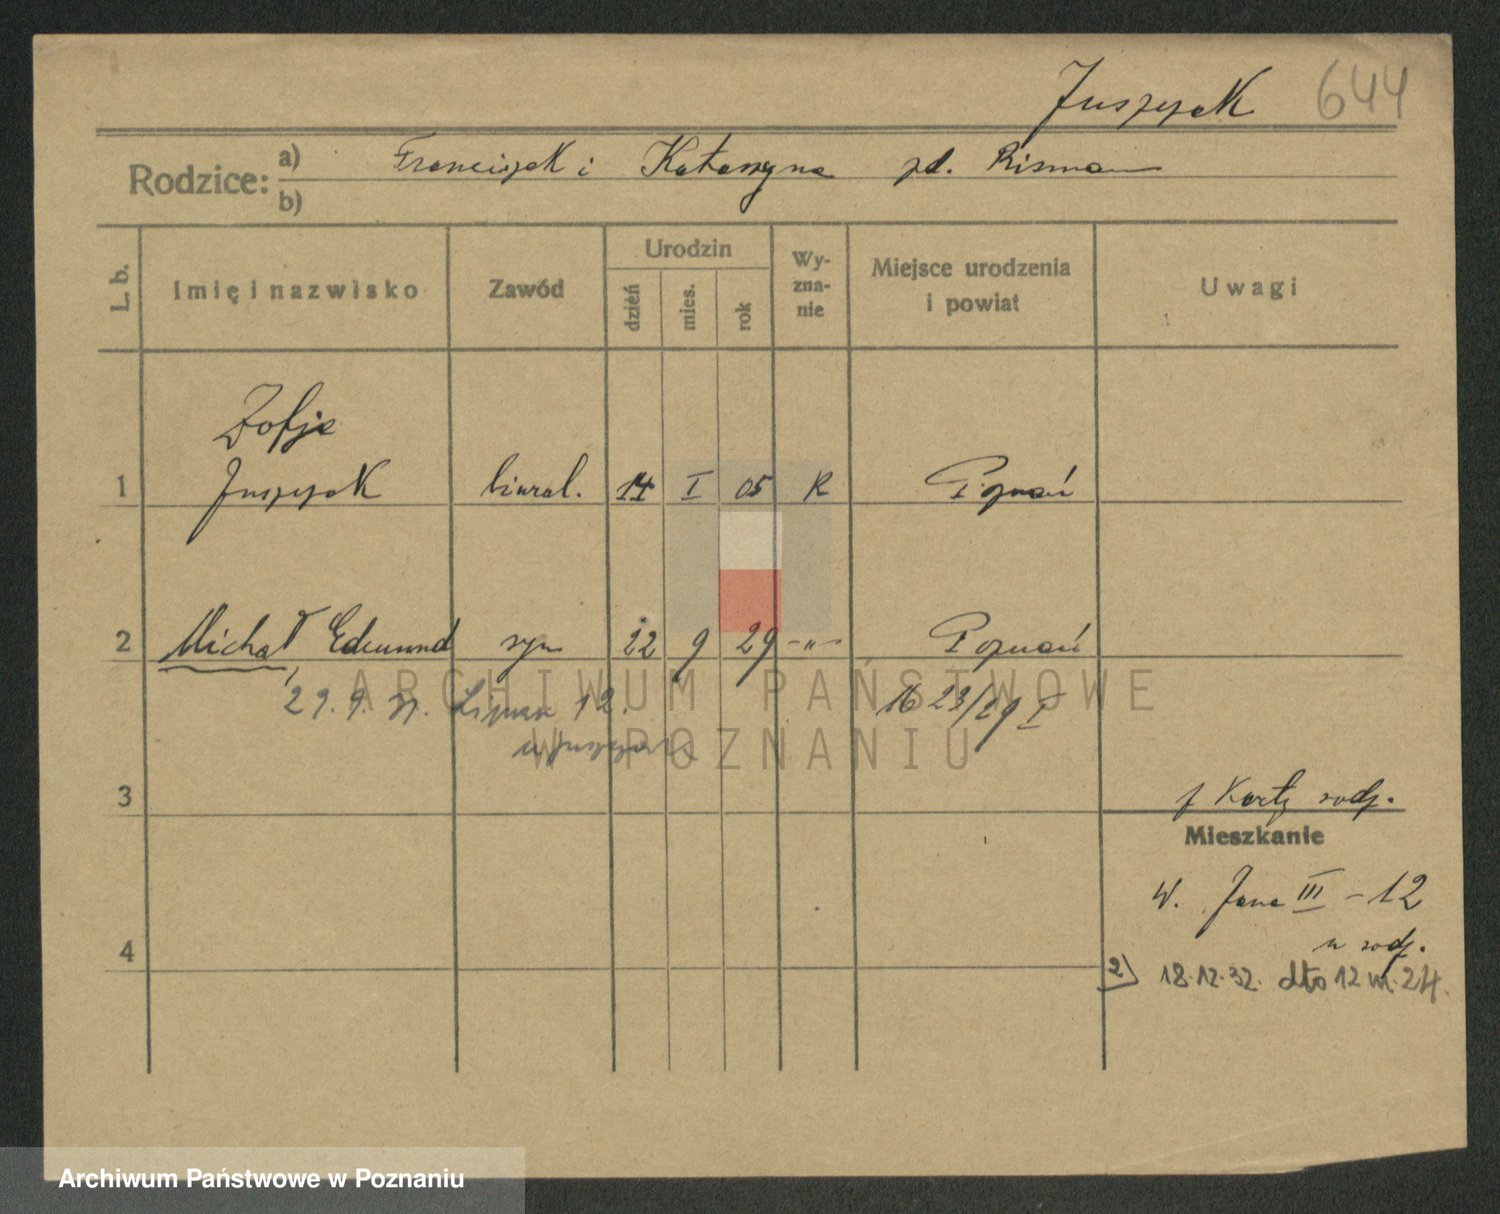 Juszczak 644
Rodzice: a) Franciszek i Katarzyna zd. Risman
b)
L. b.
Imię i nazwisko
Zawód
Urodzin
dzień
mies.
rok
Wy-
zna-
nie
Miejsce urodzenia
i powiat
Uwagi
Zofja
1 Juszczak biural. 14 I 05 R Poznań
2 Michał Edmund syn 22 9 29 -„- Poznań
29.9. 12. 1623/29 I
ARCHIWUM PAŃSTWOWE
W POZNANIU
3
z Karty rodz.
Mieszkanie
W. Jana III - 12
u rodz.
4
2) 18.12.32. dto 12 m. 24.
Archiwum Państwowe w Poznaniu